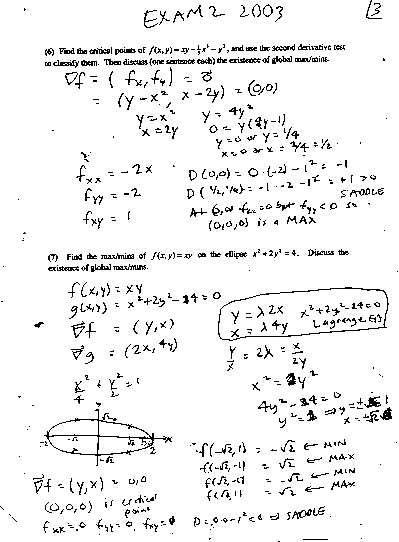 EXAM 2 2003
(6) Find the critical points of f(x,y) = xy - ⅓x³ - y², and use the second derivative test
to classify them. Then discuss (one sentence each) the existence of global max/mins.
∇f = ( fx, fy ) = 0⃗
= (y-x², x-2y) = (0,0)
y = x²   y = 4y²
x = 2y   0 = y(4y-1)
y=0 or y = 1/4
x=0 or x = 2/4 = 1/2
fxx = -2x   D(0,0) = 0·(-2) - 1² = -1
fyy = -2   D(1/2,1/4) = -1·-2-1² = +1 > 0
fxy = 1   SADDLE
At 0, or fxx = 0 but fyy < 0 so
(0,0,0) is a MAX
(7) Find the max/mins of f(x,y) = xy on the ellipse x² + 2y² = 4. Discuss the
existence of global max/mins.
f(x,y) = xy
g(x,y) = x²+2y²-4 = 0
y = λ2x   x²+2y²-4=0
x = λ4y   Lagrange Eqs
∇f = (y,x)
∇g = (2x,4y)
y/x = 2λ = x/2y
x² = 2y²
x²/4 + y²/2 = 1
4y²-4 = 0
y² = 1 ⇒ y = ±1
x = ±√2
√2
-2 -√2 √2 2 x
-√2
f(-√2,1) = -√2 ← MIN
f(-√2,-1) = √2 ← MAX
f(√2,-1) = -√2 ← MIN
f(√2,1) = √2 ← MAX
∇f = (y,x) = 0,0
(0,0,0) is critical
point
fxx = 0 fyy = 0 fxy =   D = 0·0-1² < 0 ⇒ SADDLE